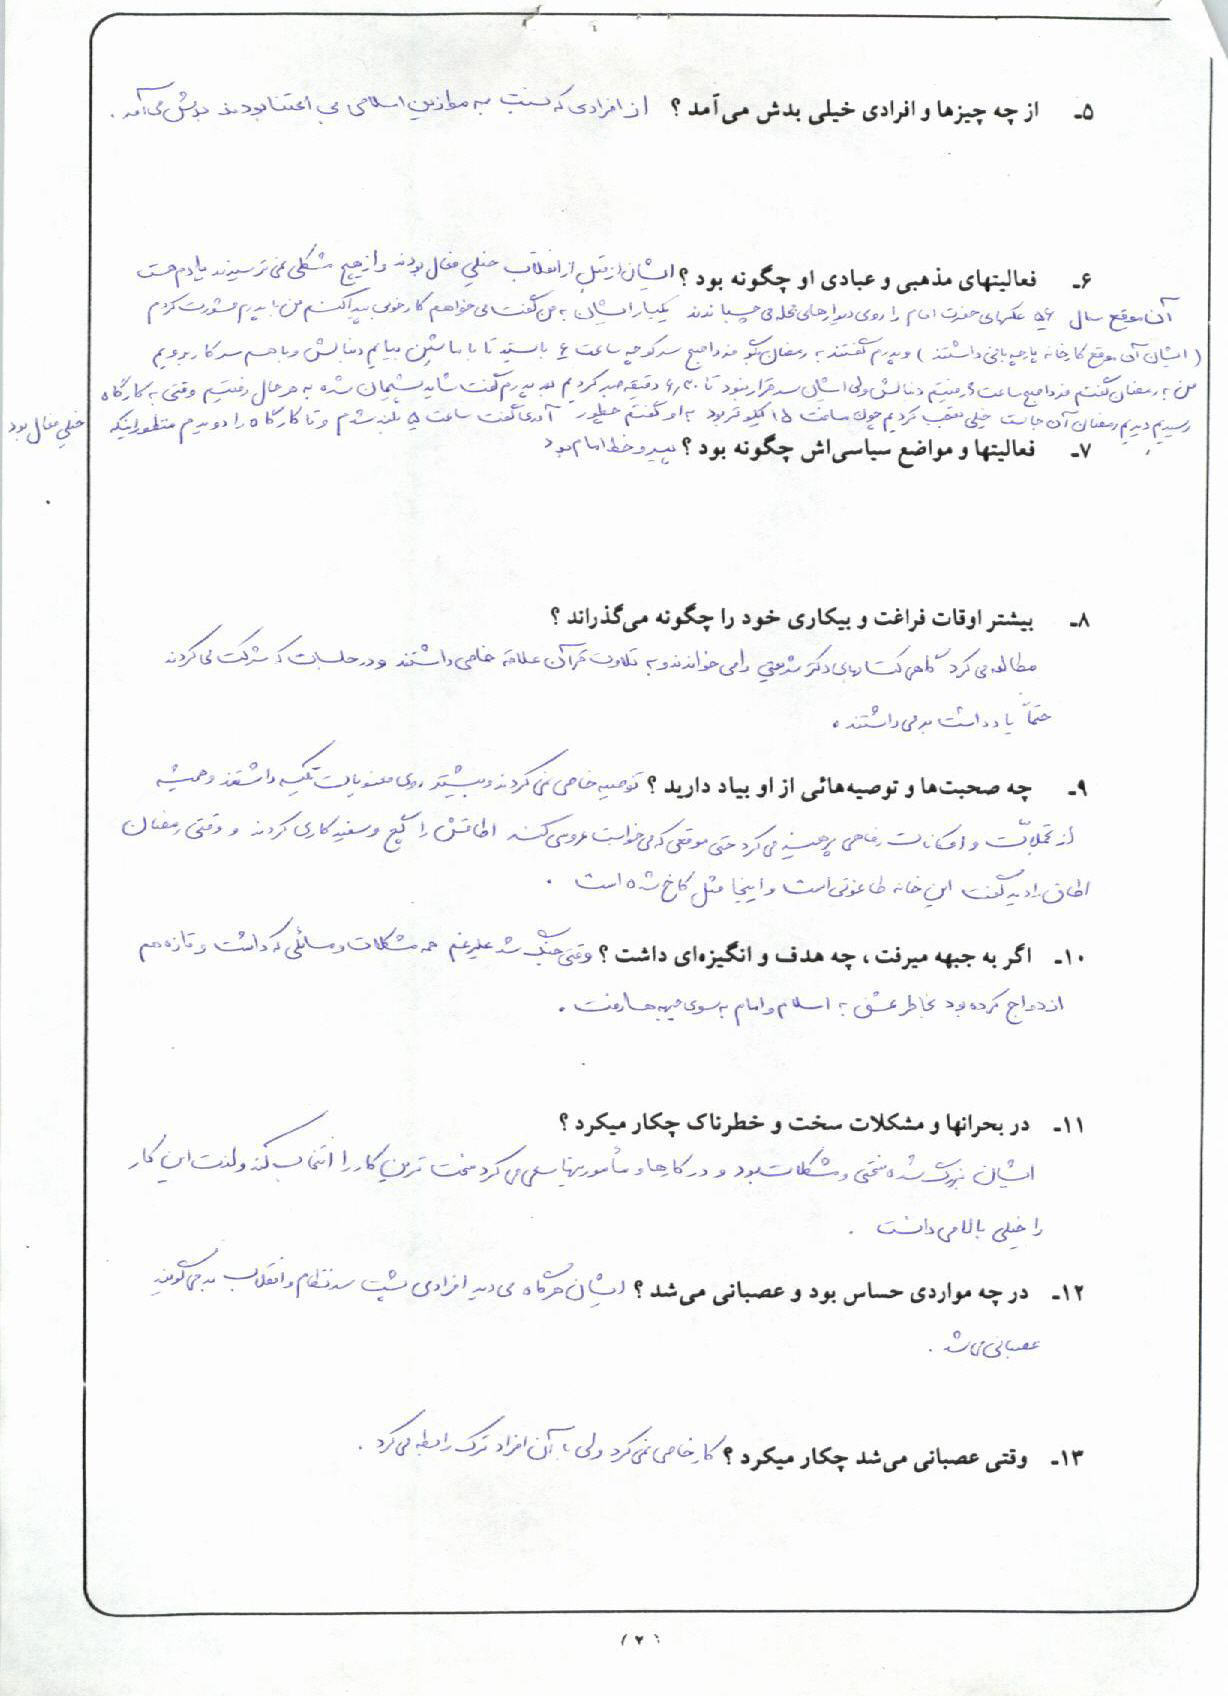 ۵ـ از چه چیزها و افرادی خیلی بدش می‌آمد ؟ از افرادی که نسبت به موازین اسلامی بی اعتنا بودند بدش می‌آمد .
۶ـ فعالیتهای مذهبی و عبادی او چگونه بود ؟ ایشان از قبل از انقلاب خیلی فعال بودند و از هیچ مشکلی نمی ترسیدند یادم هست
آن موقع سال ۵۶ عکسهای حضرت امام را روی دیوارهای محله می چسباندند یکبار ایشان به من گفت می خواهم کار خوبی پیدا کنم من با پدرم مشورت کردم
( ایشان آن موقع کارخانه پارچه بافی داشتند ) و پدرم گفتند به رمضان بگو فردا صبح سر کوچه ساعت ۶ بایستد تا با ماشین بیایم دنبالش و با هم سر کار برویم
من به رمضان گفتم فردا صبح ساعت ۶ رفتیم دنبالش ولی ایشان سر قرار نبود تا ۶٫۲۰ دقیقه صبر کردیم بعد پدرم گفت شاید پشیمان شده به هر حال رفتیم وقتی به کارگاه
رسیدیم دیدیم رمضان آن جاست خیلی تعجب کردیم چون مسافت ۱۵ کیلومتر بود به او گفتم چطور آمدی گفت ساعت ۵ بلند شدم و تا کارگاه را دویدم منظور اینکه خیلی فعال بود
۷ـ فعالیتها و مواضع سیاسی‌اش چگونه بود ؟ پیرو خط امام بود
۸ـ بیشتر اوقات فراغت و بیکاری خود را چگونه می‌گذراند ؟
مطالعه می کرد گاهی کتابهای دکتر شریعتی را می خواندند و به تلاوت قرآن علاقه خاصی داشتند و در جلسات که شرکت می کردند
حتماً یادداشت برمی داشتند .
۹ـ چه صحبت‌ها و توصیه‌هائی از او بیاد دارید ؟ توصیه خاصی نمی کردند و بیشتر روی معنویات تکیه داشتند و همیشه
از تجملات و امکانات رفاهی پرهیز می کرد حتی موقعی که می خواست عروسی کند اطاقش را گچ و سفید کاری کردند و وقتی رمضان
اطاق را دید گفت این خانه طاغوتی است و اینجا مثل کاخ شده است .
۱۰ـ اگر به جبهه میرفت ، چه هدف و انگیزه‌ای داشت ؟ وقتی جنگ شد علیرغم همه مشکلات و مسائلی که داشت و تازه هم
ازدواج کرده بود بخاطر عشق به اسلام و امام به سوی جبهه ها رفت .
۱۱ـ در بحرانها و مشکلات سخت و خطرناک چکار میکرد ؟
ایشان بزرگ شده سختی و مشکلات بود و در کارها و مأموریتها سعی می کرد سخت ترین کار را انتخاب کند و لذت این کار
را خیلی بالا می دانست .
۱۲ـ در چه مواردی حساس بود و عصبانی می‌شد ؟ ایشان هر گاه می دید افرادی پشت سر نظام و انقلاب بد می گویند
عصبانی می شد .
۱۳ـ وقتی عصبانی می‌شد چکار میکرد ؟ کار خاصی نمی کرد ولی با آن افراد ترک رابطه می کرد .
( ۲ )